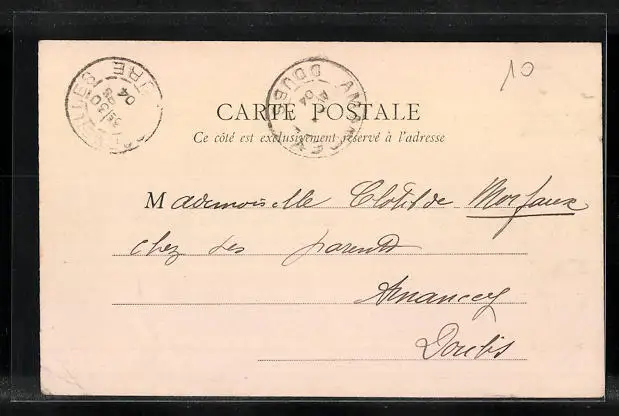 10
CARTE POSTALE
Ce côté est exclusivement réservé à l'adresse
Mademoiselle Clotilde Morfaux
chez ses parents
Amancey
Doubs
AMANCEY
DOUBS
04